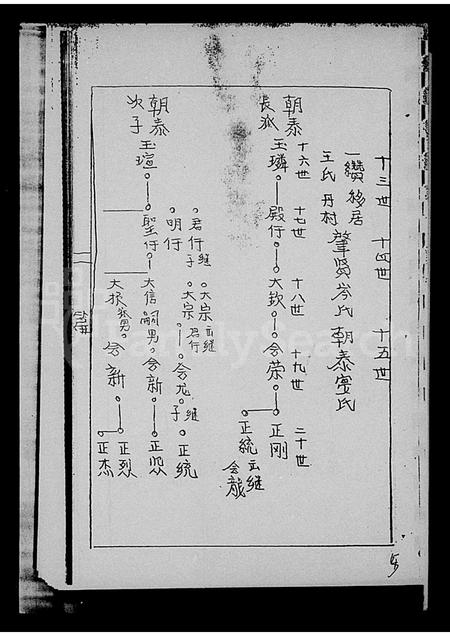 十三世 十四世 十五世
一纘移居 肇賢岑氏 朝泰寗氏
王氏丹村
朝泰 十六世 十七世 十八世 十九世 二十世
長派 玉璘 殿行 大欽 会荣 正剛
正統 立継
会龍
君行継子 大宗立継
君行
明行 大宗 会龙継子 正統
朝泰 玉瑄 聖行 大信嗣男 会新 正
次子
大振 男 会新 正烈
正杰
FamilySearch